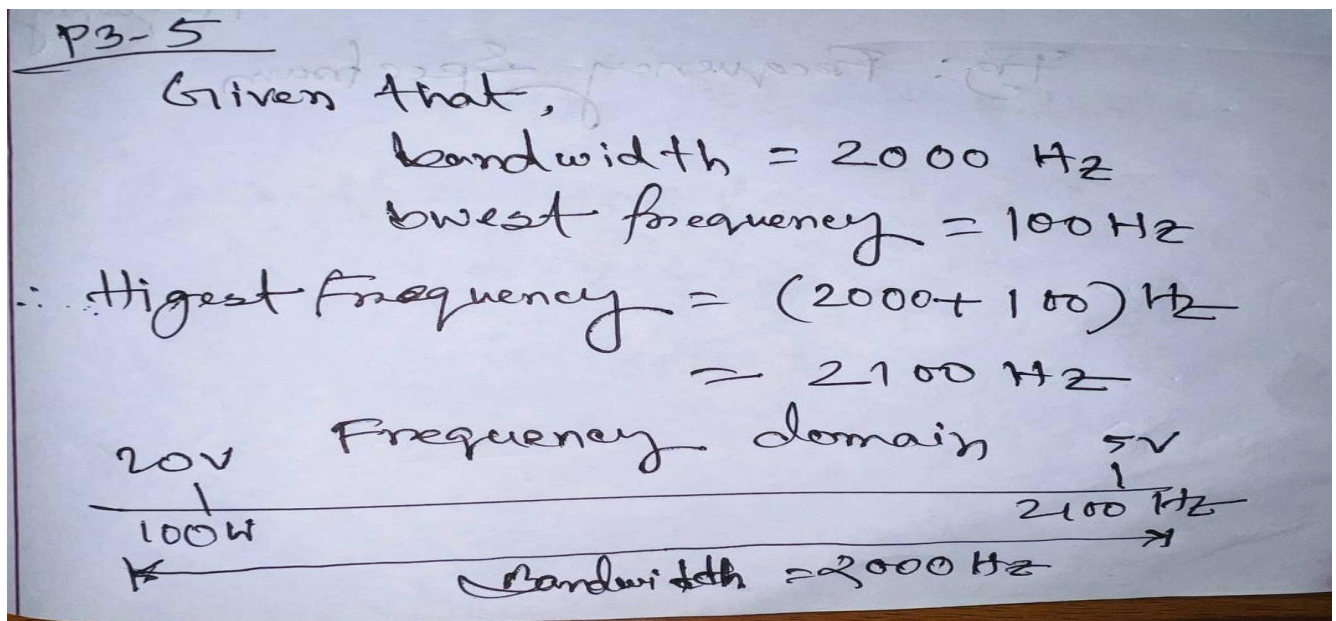 P3-5
Given that,
bandwidth = 2000 Hz
lowest frequency = 100 Hz
∴ Higest frequency = (2000+100) Hz
= 2100 Hz
Frequency domain
20V 5V
100 2100 Hz
Bandwidth = 2000 Hz